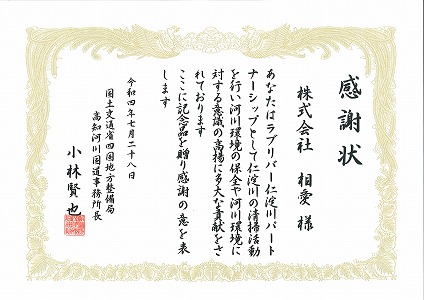 感謝状
株式会社 相愛 様
あなたはラブリバー仁淀川パート
ナーシップとして仁淀川の清掃活動
を行い河川環境の保全や河川環境に
対する意識の高揚に多大な貢献をさ
れております
ここに記念品を贈り感謝の意を表
します
令和四年七月二十八日
国土交通省四国地方整備局
高知河川国道事務所長
小林賢也